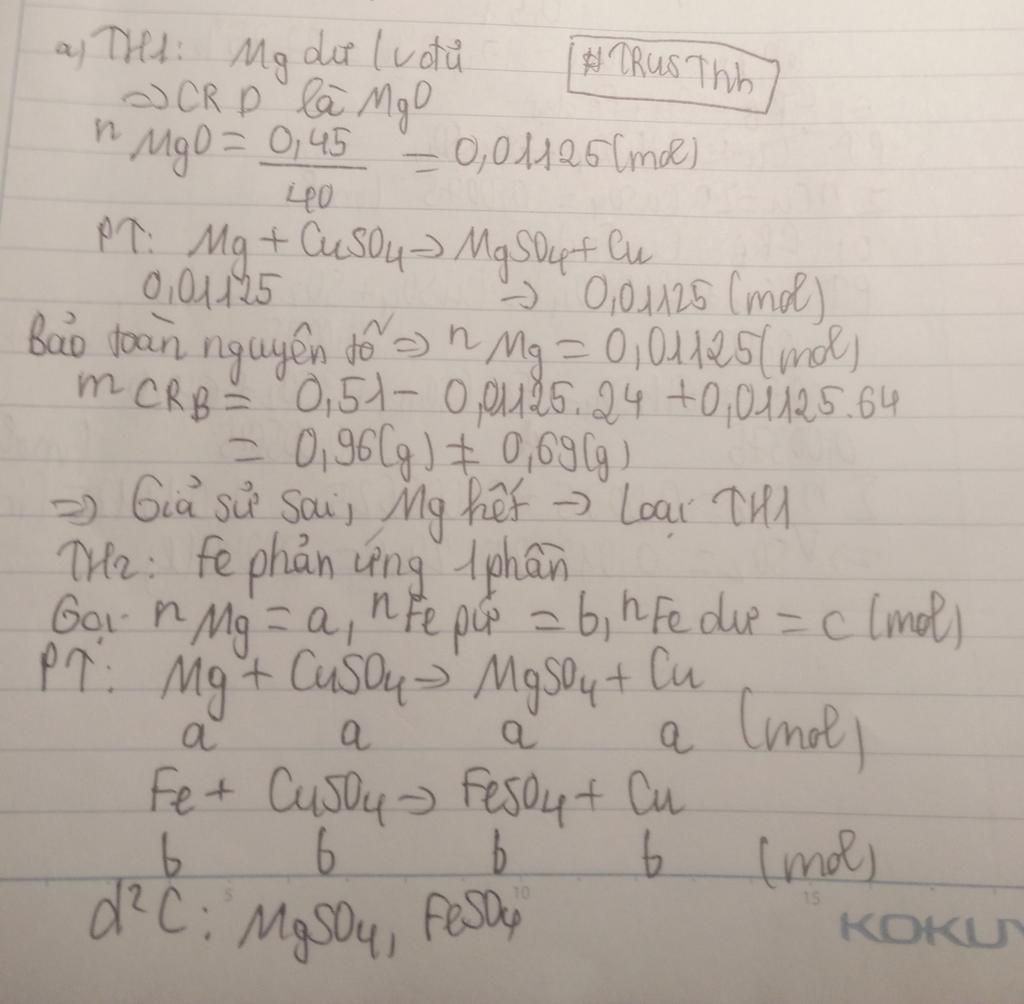 a, TH1: Mg dư (vđủ
#TRUSThh
=> CRD là MgO
nMgO = 0,45/40 = 0,01125(mol)
PT: Mg + CuSO4 -> MgSO4 + Cu
0,01125 -> 0,01125 (mol)
Bảo toàn nguyên tố => nMg = 0,01125(mol)
mCRB = 0,51 - 0,01125.24 + 0,01125.64
= 0,96(g) ≠ 0,69(g)
=> Giả sử sai, Mg hết -> Loại TH1
TH2: Fe phản ứng 1 phần
Gọi nMg = a, nFe pứ = b, nFe dư = c (mol)
PT: Mg + CuSO4 -> MgSO4 + Cu
a a a a (mol)
Fe + CuSO4 -> FeSO4 + Cu
b b b b (mol)
d²C: MgSO4, FeSO4
5 10 15
KOKU